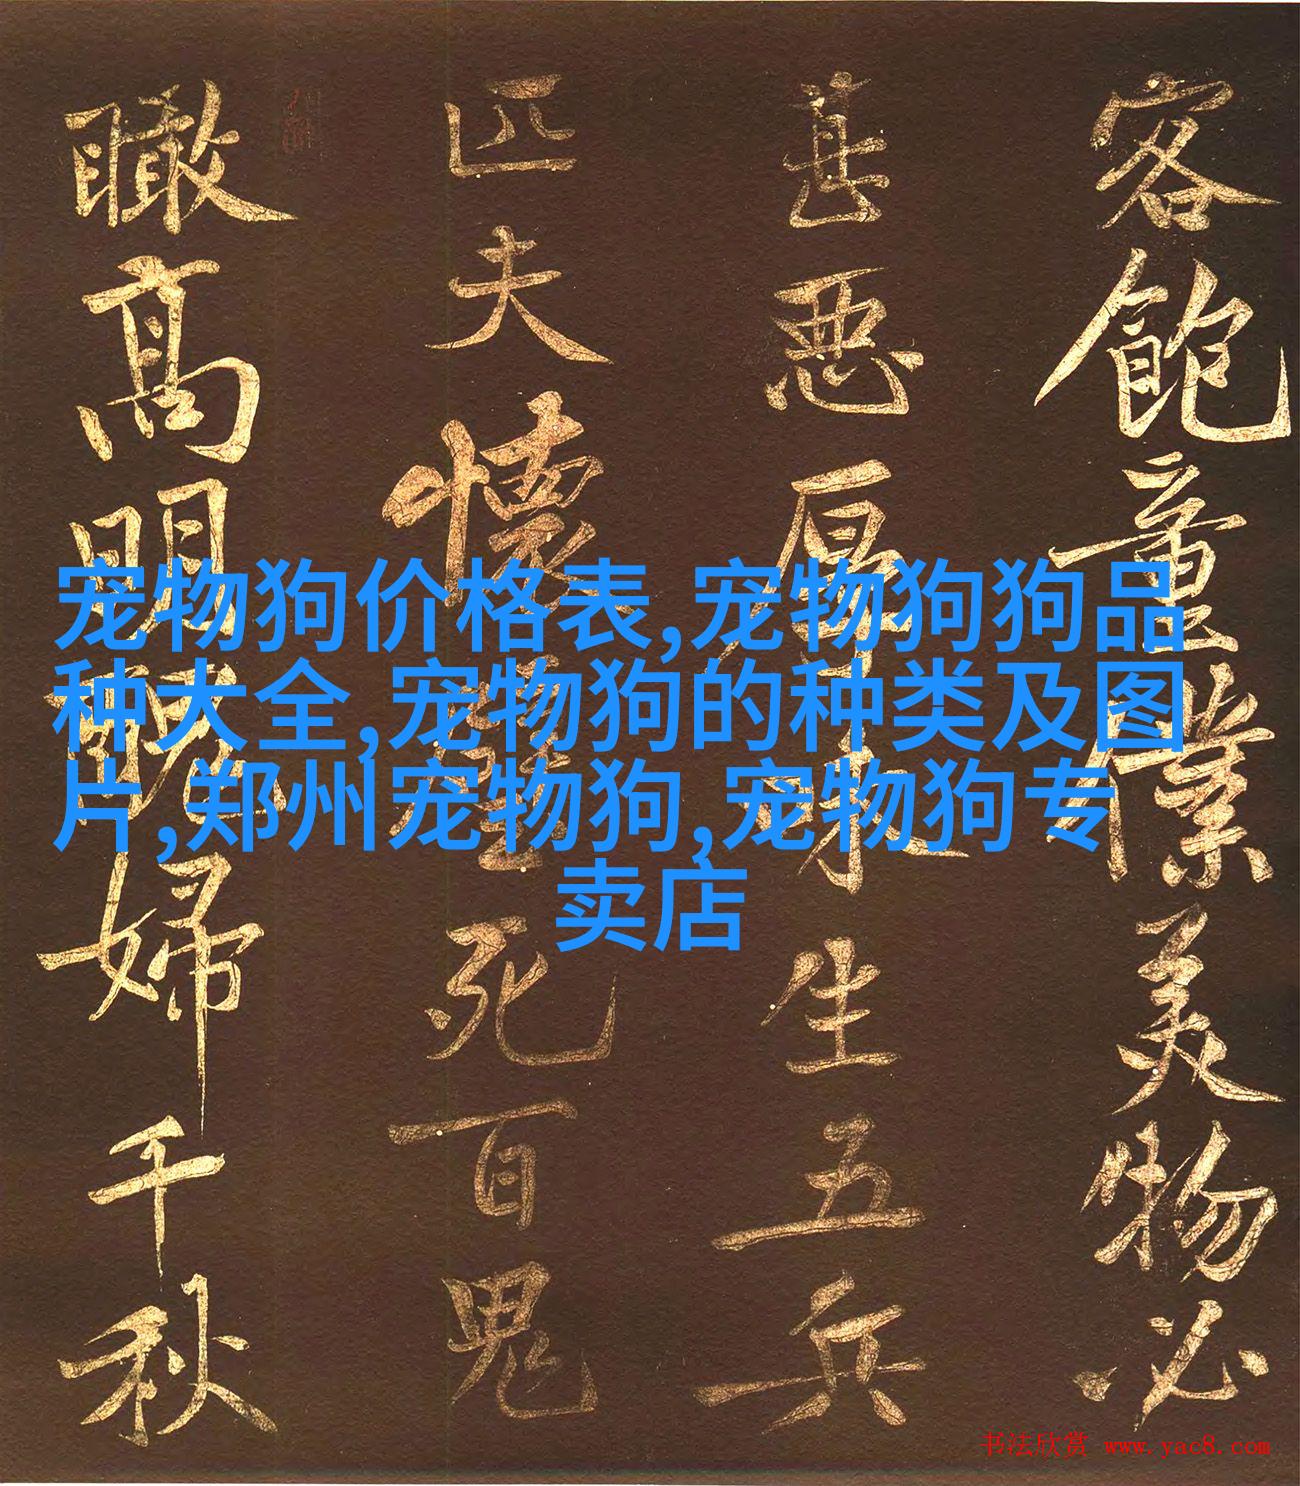 宠物狗价格表,宠物狗狗品
种大全,宠物狗的种类及图
片,郑州宠物狗,宠物狗专
卖店
客飽童僕美物必
甚惡厚味生五兵
匹夫懷璧死百鬼
瞰高明醜婦千秋
书法欣赏 www.yac8.com